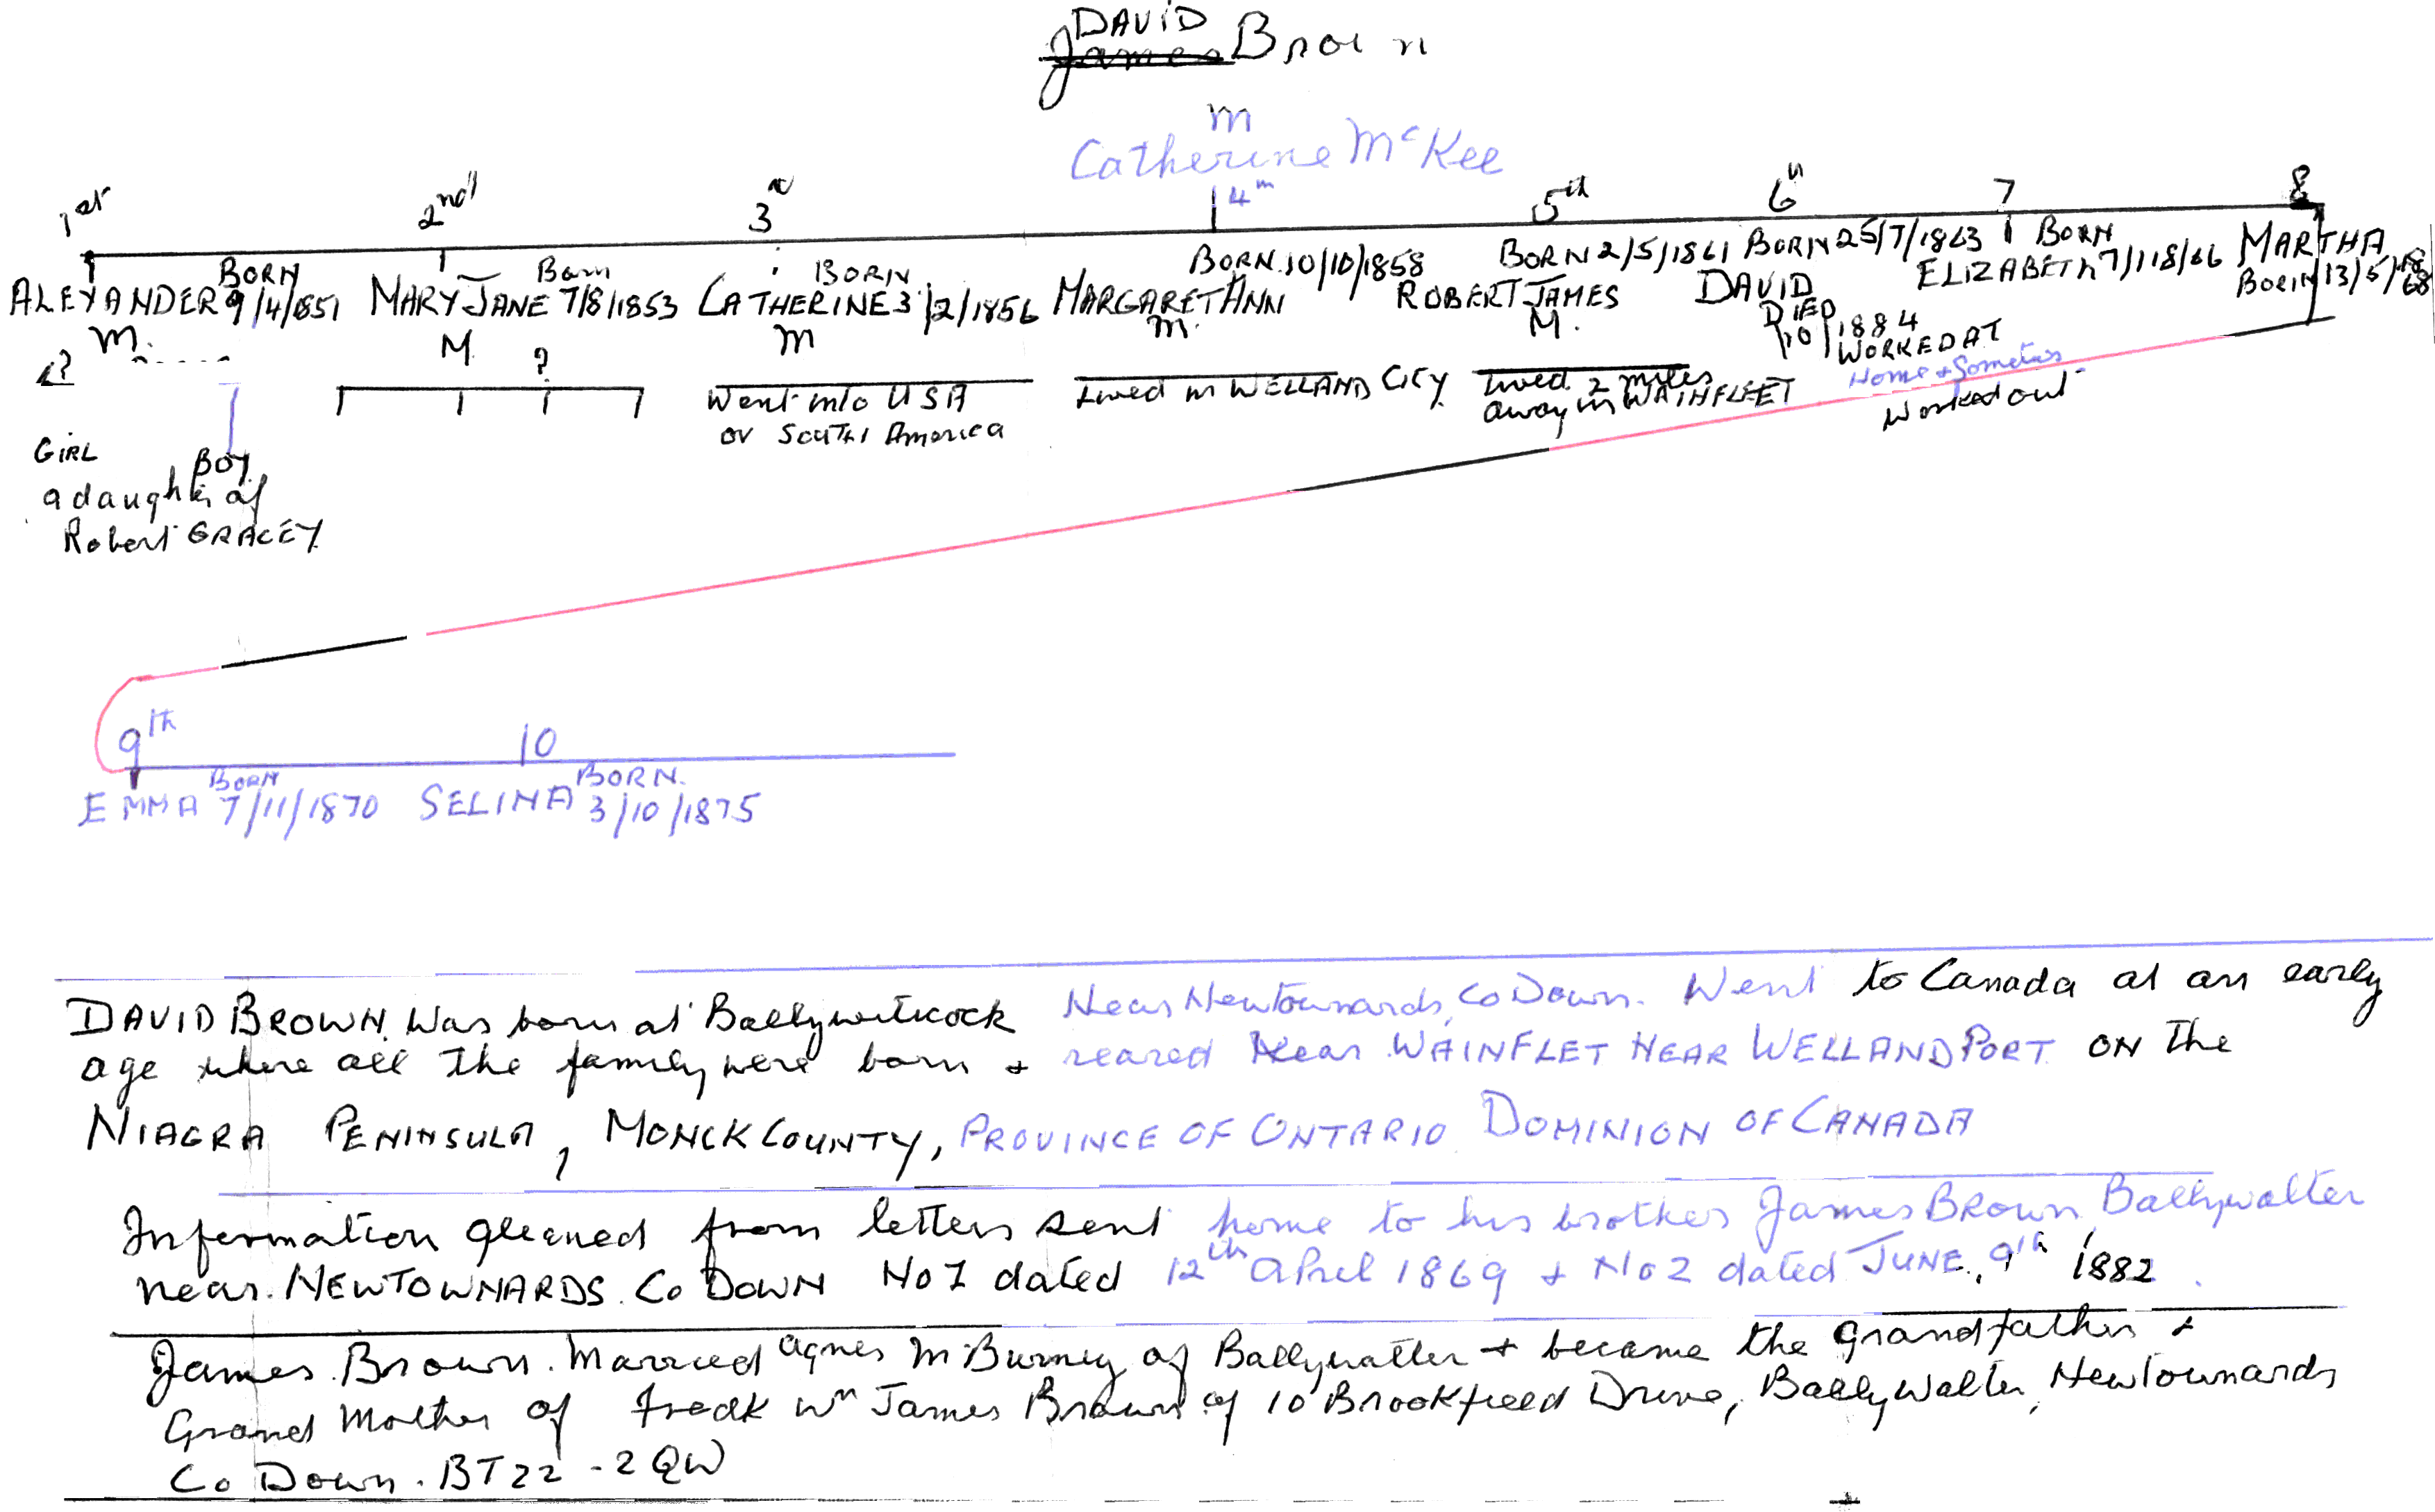 DAVID
James Brown
m
Catherine McKee
1st 2nd 3rd 4th 5th 6th 7 8
ALEXANDER BORN 9/4/1851
m.
?
GIRL BOY
a daughter of
Robert GRACEY
MARY JANE Born 7/8/1853
M ?
CATHERINE BORN 3/2/1856
m
Went into USA
or South America
BORN 10/10/1858
MARGARET ANN
m.
Lived in WELLAND CITY
BORN 2/5/1861
ROBERT JAMES
M.
Lived 2 miles
away in WAINFLEET
BORN 25/7/1863
DAVID
DIED
10/1884
WORKED AT
Home + Sometimes
Worked out
BORN
ELIZABETH 7/1/1866
MARTHA
BORN 13/5/1868
9th 10
EMMA BORN 7/11/1870 SELINA BORN. 3/10/1875
DAVID BROWN Was born at Ballywitticock Near Newtownards, Co Down. Went to Canada at an early
age where all the family were born + reared Near WAINFLET NEAR WELLANDPORT ON The
NIAGRA PENINSULA, MONCK COUNTY, PROVINCE OF ONTARIO DOMINION OF CANADA
Information gleaned from letters sent home to his brother James Brown, Ballywalter
near. NEWTOWNARDS. Co DOWN No 1 dated 12th April 1869 + No 2 dated JUNE, 9th 1882.
James Brown. Married Agnes McBurney of Ballywalter + became the Grandfather +
Grand Mother of Fredk Wm James Brown of 10 Brookfield Drive, Ballywalter, Newtownards
Co Down. BT22 - 2QW